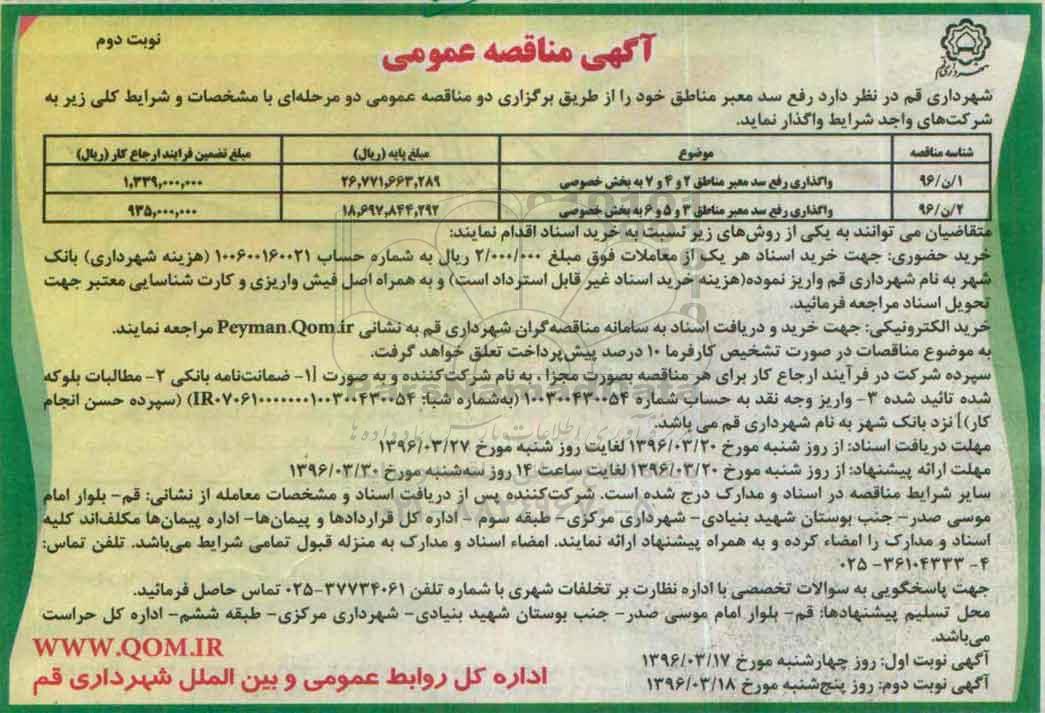 نوبت دوم
آگهی مناقصه عمومی
شهرداری قم
شهرداری قم در نظر دارد رفع سد معبر مناطق خود را از طریق برگزاری دو مناقصه عمومی دو مرحله‌ای با مشخصات و شرایط کلی زیر به
شرکت‌های واجد شرایط واگذار نماید.
شناسه مناقصه موضوع مبلغ پایه (ریال) مبلغ تضمین فرایند ارجاع کار (ریال)
۱/ن/۹۶ واگذاری رفع سد معبر مناطق ۲ و ۴ و ۷ به بخش خصوصی ۲۶,۷۷۱,۶۶۳,۲۸۹ ۱,۳۳۹,۰۰۰,۰۰۰
۲/ن/۹۶ واگذاری رفع سد معبر مناطق ۳ و ۵ و ۶ به بخش خصوصی ۱۸,۶۹۷,۸۴۴,۲۹۲ ۹۳۵,۰۰۰,۰۰۰
متقاضیان می توانند به یکی از روش‌های زیر نسبت به خرید اسناد اقدام نمایند:
خرید حضوری: جهت خرید اسناد هر یک از معاملات فوق مبلغ ۲/۰۰۰/۰۰۰ ریال به شماره حساب ۱۰۰۶۰۰۱۶۰۰۲۱ (هزینه شهرداری) بانک
شهر به نام شهرداری قم واریز نموده(هزینه خرید اسناد غیر قابل استرداد است) و به همراه اصل فیش واریزی و کارت شناسایی معتبر جهت
تحویل اسناد مراجعه فرمائید.
خرید الکترونیکی: جهت خرید و دریافت اسناد به سامانه مناقصه‌گران شهرداری قم به نشانی Peyman.Qom.ir مراجعه نمایند.
به موضوع مناقصات در صورت تشخیص کارفرما ۱۰ درصد پیش‌پرداخت تعلق خواهد گرفت.
سپرده شرکت در فرآیند ارجاع کار برای هر مناقصه بصورت مجزا، به نام شرکت‌کننده و به صورت [۱- ضمانت‌نامه بانکی ۲- مطالبات بلوکه
شده تائید شده ۳- واریز وجه نقد به حساب شماره ۱۰۰۳۰۰۴۳۰۰۵۴ (به‌شماره شبا: IR۰۷۰۶۱۰۰۰۰۰۰۰۱۰۰۳۰۰۴۳۰۰۵۴) (سپرده حسن انجام
کار)] نزد بانک شهر به نام شهرداری قم می باشد.
مهلت دریافت اسناد: از روز شنبه مورخ ۱۳۹۶/۰۳/۲۰ لغایت روز شنبه مورخ ۱۳۹۶/۰۳/۲۷
مهلت ارائه پیشنهاد: از روز شنبه مورخ ۱۳۹۶/۰۳/۲۰ لغایت ساعت ۱۴ روز سه‌شنبه مورخ ۱۳۹۶/۰۳/۳۰
سایر شرایط مناقصه در اسناد و مدارک درج شده است. شرکت‌کننده پس از دریافت اسناد و مشخصات معامله از نشانی: قم- بلوار امام
موسی صدر- جنب بوستان شهید بنیادی- شهرداری مرکزی- طبقه سوم - اداره کل قراردادها و پیمان‌ها- اداره پیمان‌ها مکلف‌اند کلیه
اسناد و مدارک را امضاء کرده و به همراه پیشنهاد ارائه نمایند. امضاء اسناد و مدارک به منزله قبول تمامی شرایط می‌باشد. تلفن تماس:
۴- ۳۶۱۰۴۳۳۳- ۰۲۵
جهت پاسخگویی به سوالات تخصصی با اداره نظارت بر تخلفات شهری با شماره تلفن ۳۷۷۳۴۰۶۱-۰۲۵ تماس حاصل فرمائید.
محل تسلیم پیشنهادها: قم- بلوار امام موسی صدر- جنب بوستان شهید بنیادی- شهرداری مرکزی- طبقه ششم- اداره کل حراست
می‌باشد.
آگهی نوبت اول: روز چهارشنبه مورخ ۱۳۹۶/۰۳/۱۷
آگهی نوبت دوم: روز پنج‌شنبه مورخ ۱۳۹۶/۰۳/۱۸
WWW.QOM.IR
اداره کل روابط عمومی و بین الملل شهرداری قم